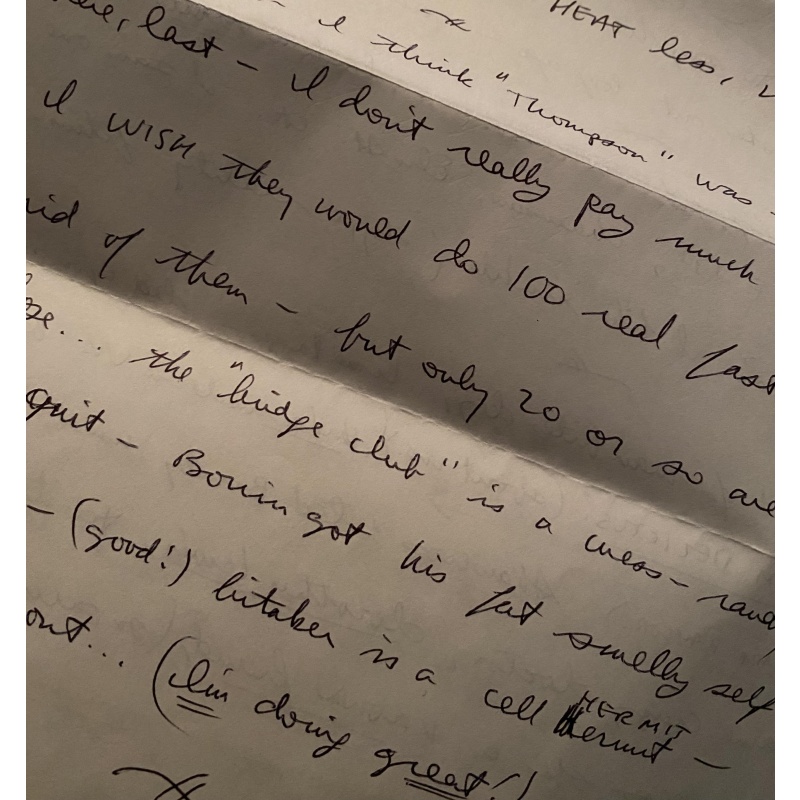 HEAT less,
I think "Thompson" was -
last - I don't really pay much
I WISH they would do 100 real fast
rid of them - but only 20 or so are
... the "bridge club" is a mess - randy
quit - Bonin got his fat smelly self
- (good!) bitaker is a cell HERMIT hermit -
out... (I'm doing great!)